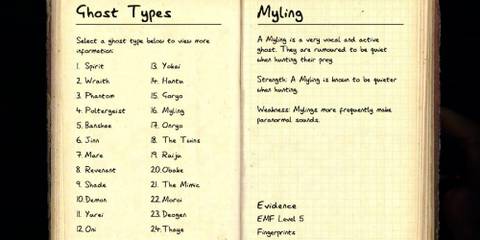 Ghost Types
Select a ghost type below to view more
information:
1. Spirit
2. Wraith
3. Phantom
4. Poltergeist
5. Banshee
6. Jinn
7. Mare
8. Revenant
9. Shade
10. Demon
11. Yurei
12. Oni
13. Yokai
14. Hantu
15. Goryo
16. Myling
17. Onryo
18. The Twins
19. Raiju
20. Obake
21. The Mimic
22. Moroi
23. Deogen
24. Thaye
Myling
A Myling is a very vocal and active
ghost. They are rumoured to be quiet
when hunting their prey.
Strength: A Myling is known to be quieter
when hunting.
Weakness: Mylings more frequently make
paranormal sounds.
Evidence
EMF Level 5
Fingerprints